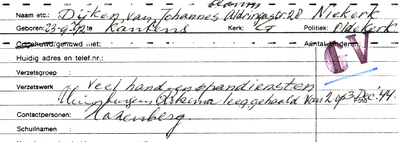 Naam etc.: Dijken, van Johannes Wieringastr 28 Niekerk
Geboren: 23-9-'12 te Kantens Kerk: G Politiek: Oldekerk
Ongehuwd/gehuwd met: Aantal kinderen:
Huidig adres en telef.nr.:
Verzetsgroep :
Verzetswerk : veel hand en spandiensten
Thuis leeggehaald van 2 op 3 Dec '44.
Foto
Contactpersonen:
Schuilnamen :
GV